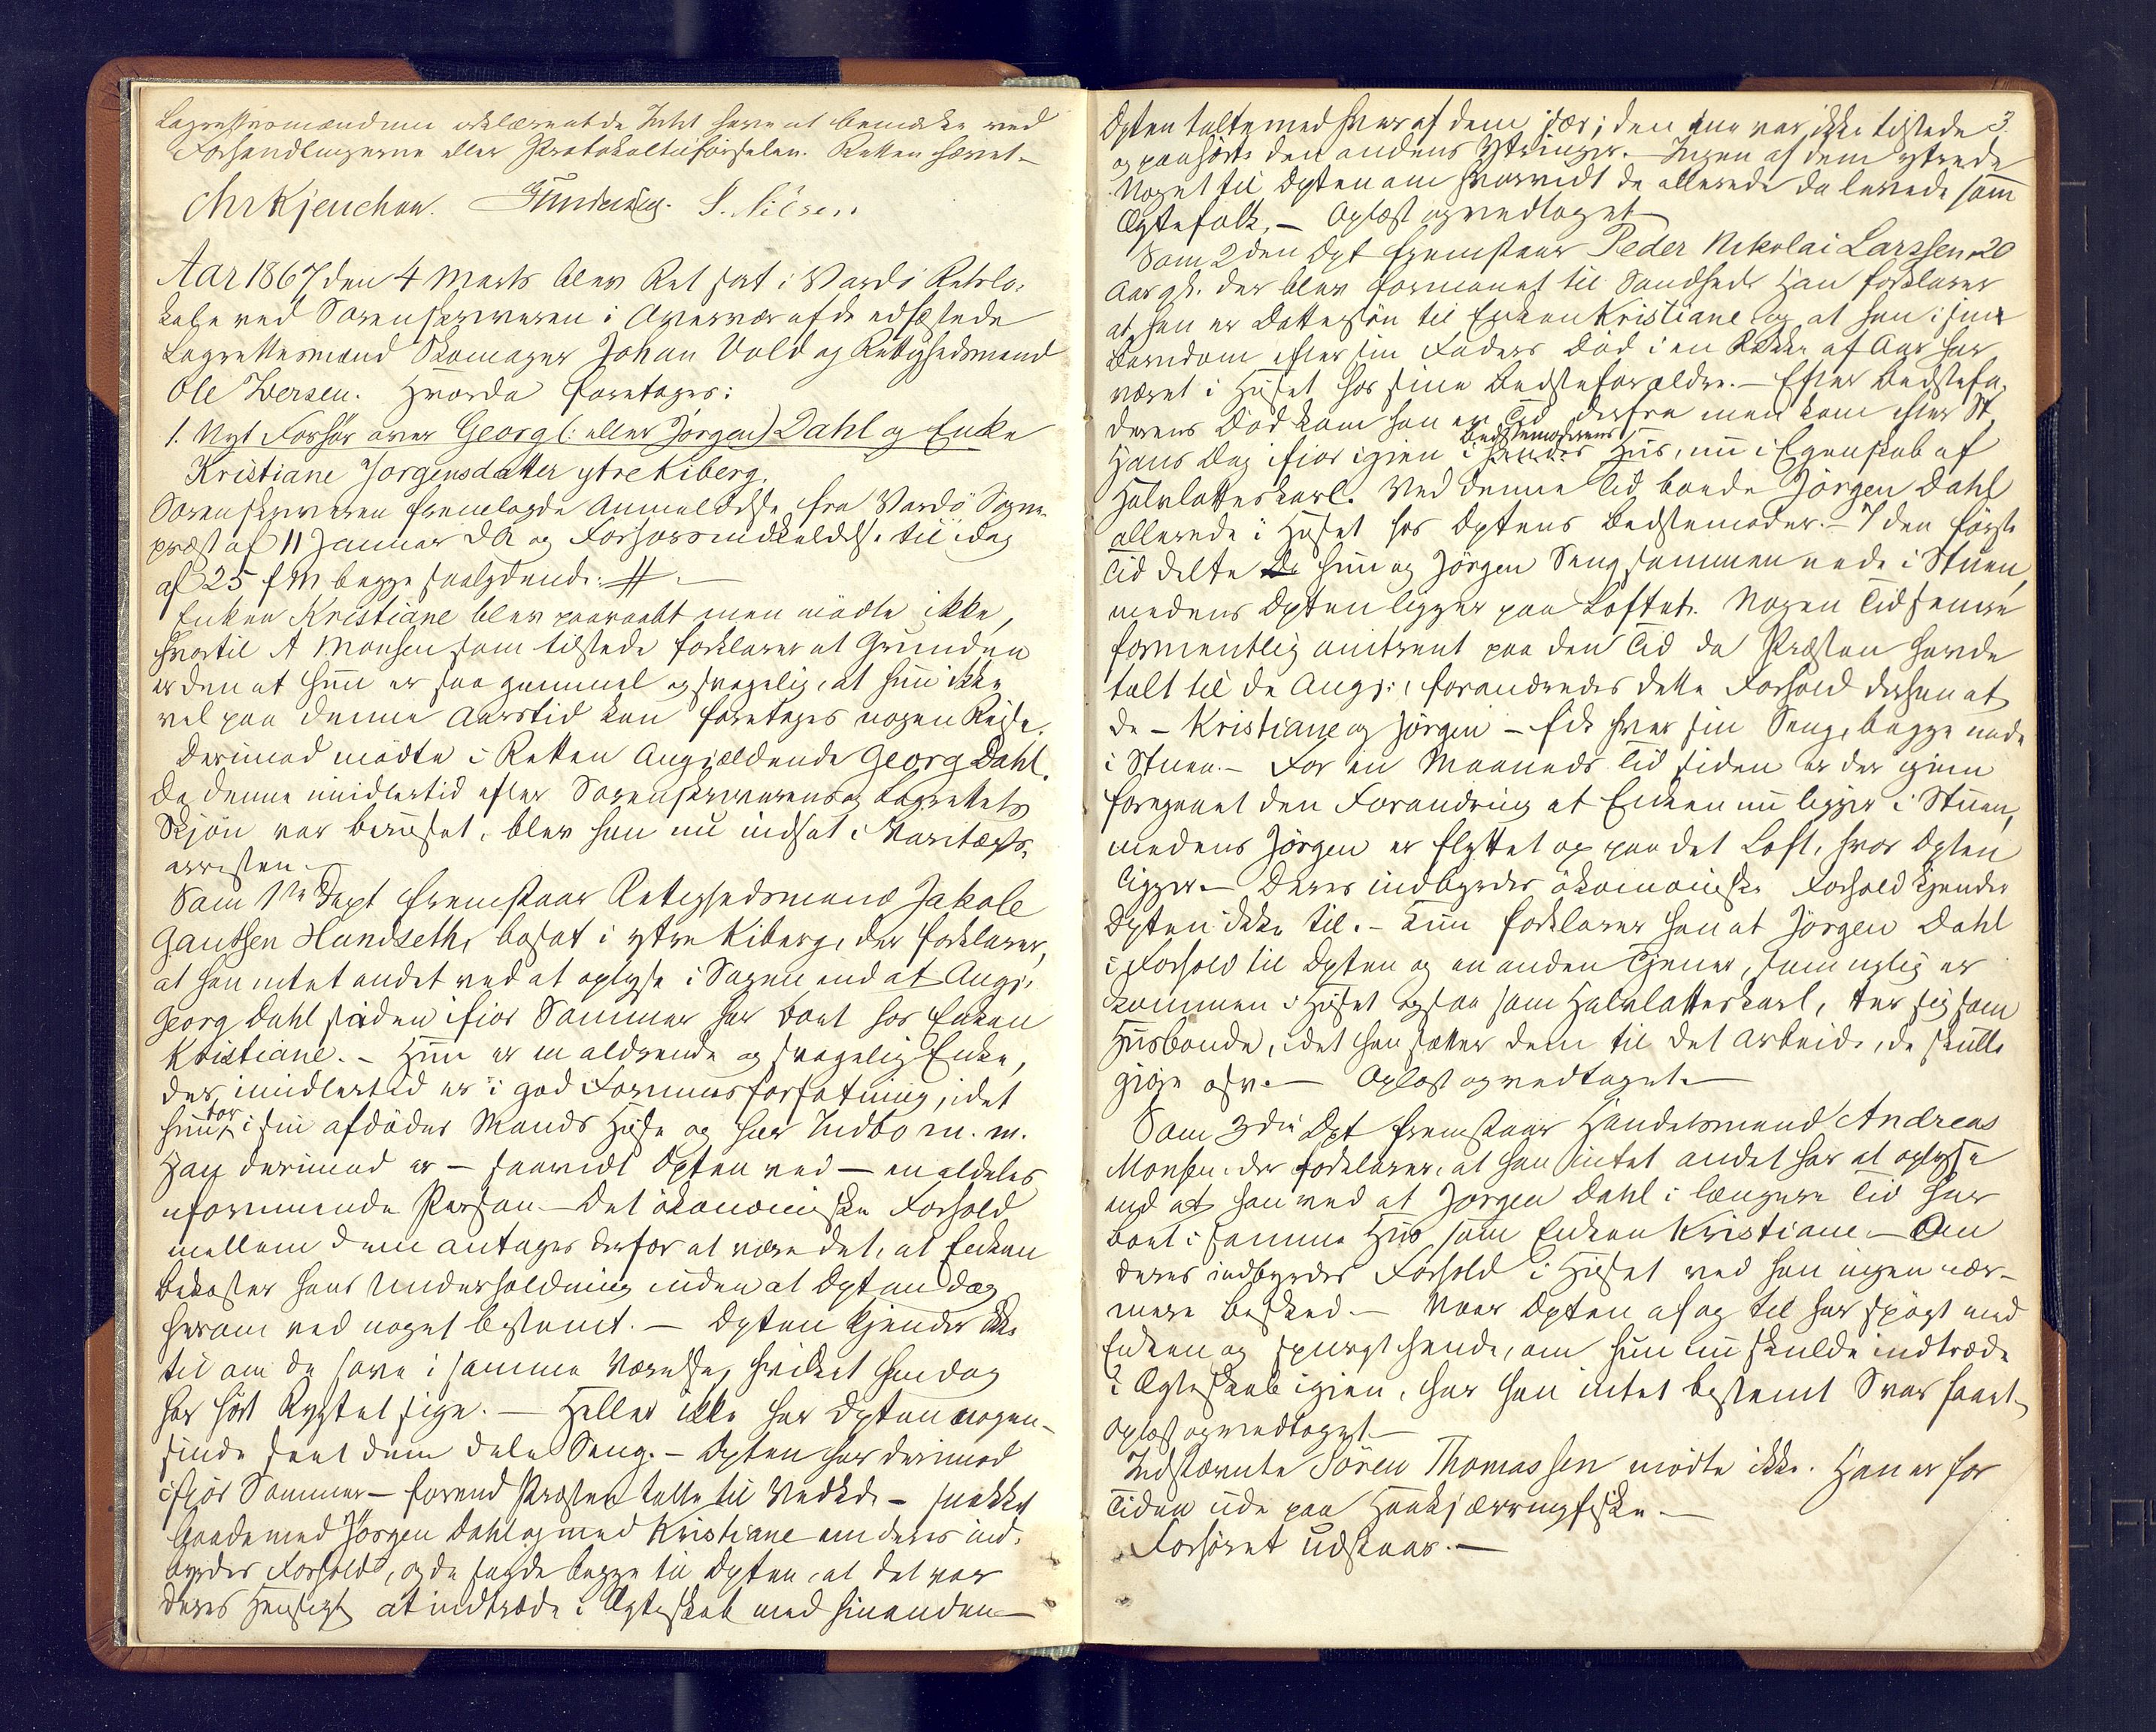 Lagrettesmændene erklærede Intet have at bemærke ved
Forhandlingerne eller Protokoltilførselen. Retten hævet.
Chr Kjerschow. Gundersen. S. Nilsen.
Aar 1867 den 4 Marts blev Ret sat i Vardø Retslo-
kale ved Sorenskriveren i Overvær af de edfæstede
Lagrettesmænd Skomager Johan Vold og Rettighedsmand
Ole Iversen. Hvorda foretages:
1. Nyt Forhør over Georg (: eller Jørgen) Dahl og Enke
Kristiane Jørgensdatter ytre Kiberg.
Sorenskriveren fremlagde Anmeldelse fra Vardø Sogne-
præst af 11 Januar d A og Forhørsindkaldelse til idag
af 25 f M begge saalydende: #.
Enken Kristiane blev paaraabt men mødte ikke,
hvortil A Monsen som tilstede forklarer at Grunden
er den at hun er saa gammel og svagelig, at hun ikke
vel paa denne Aarstid kan foretage nogen Reise.
Derimod mødte i Retten Angjældende Georg Dahl.
Da denne imidlertid efter Sorenskriverens og Lagrettets
Skjøn var beruset, blev han nu indsat i Varetægts-
arresten.
Som 1ste Dept fremstaar Rettighedsmand Jakob
Gautsen Hundseth, bosat i ytre Kiberg, der forklarer,
at han intet andet ved at oplyse i Sagen, end at Angj.
Georg Dahl siden ifjor Sommer har boet hos Enken
Kristiane. - Hun er en aldrende og svagelig Enke,
der imidlertid er i god Formuesforfatning, idet
hun bor i sin afdøde Mands Huse og har Indbo m. m.
Han derimod er - saavidt Dpten ved - en aldeles
uformuende Person. - Det økonomiske Forhold
mellem dem antages derfor at være det, at Enken
bekoster hans Underholdning uden at Dpten dog
herom ved noget bestemt. - Dpten kjender ikke
til om de sove i samme Værelse, hvilket han dog
har hørt Rygtet sige. - Heller ikke har Dpten nogen-
sinde seet dem dele Seng. - Dpten har derimod
ifjor Sommer - førend Præsten talte til Vedkde - snakket
baade med Jørgen Dahl og med Kristiane om deres ind-
byrdes Forhold, og de sagde begge til Dpten, at det var
deres Hensigt at indtræde i Ægteskab med hinanden
3.
Dpten talte med hver af dem især; den ene var ikke tilstede
og paahørte den andens Ytringer. - Ingen af dem ytrede
Noget til Dpten om hvorvidt de allerede da levede som
Ægtefolk. - Oplæst og vedtaget
Som 2den Dpt fremstaar Peder Nikolai Larssen 20
Aar gl. der blev formanet til Sandhed. Han forklarer
at han er Dattersøn til Enken Kristiane og at han i sin
Barndom efter sin Faders Død i en Række af Aar har
været i Huset hos sine Bedsteforældre. - Efter Bedstefa-
derens Død kom han en Tid derfra men kom efter St.
Hans Dag ifjor igjen i hendes Bedstemoderens Hus, nu i Egenskab af
Halvlotteskarl. Ved denne Tid boede Jørgen Dahl
allerede i Huset hos Dptens Bedstemoder. - I den første
Tid delte De hun og Jørgen Seng sammen nede i Stuen,
medens Dpten ligger paa Loftet. Nogen Tid senere
formentlig omtrent paa den Tid da Præsten havde
talt til de Angj., forandredes dette Forhold derhen at
de - Kristiane og Jørgen - fik hver sin Seng, begge nede
i Stuen. - For en Maaneds Tid siden er der igjen
foregaaet den Forandring at Enken nu ligger i Stuen,
medens Jørgen er flyttet op paa det Loft, hvor Dpten
ligger. - Deres indbyrdes økonomiske Forhold kjender
Dpten ikke til. - Kun forklarer han at Jørgen Dahl
i Forhold til Dpten og en anden Tjener, som nylig er
kommen i Huset ogsaa som Halvlotteskarl, ter sig som
Husbonde, idet han sætter dem til det Arbeide, de skulle
gjøre osv. - Oplæst og vedtaget.
Som 3die Dpt fremstaar Handelsmand Andreas
Monsen. der forklarer, at han intet andet har at oplyse
end at han ved at Jørgen Dahl i længere Tid har
boet i samme Hus som Enken Kristiane. - Om
deres indbyrdes Forhold i Huset ved han ingen nær-
mere Besked. - Naar Dpten af og til har spøgt med
Enken og spurgt hende, om hun nu skulde indtræde
i Ægteskab igjen, har han intet bestemt Svar faaet
Oplæst og vedtaget.
Indstævnte Søren Thomassen mødte ikke. Han er for
Tiden ude paa Haakjærringfiske. -
Forhøret udstaar. -